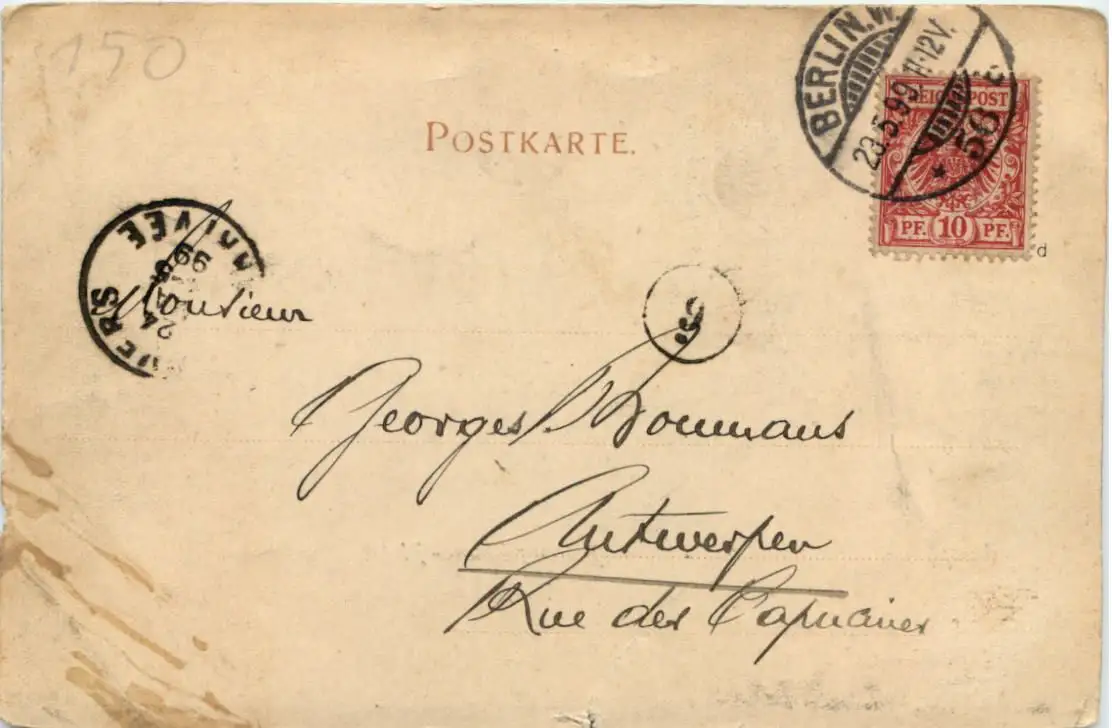 150
BERLIN.W.
23.5.99.11-12V.
* 56 c
REICHSPOST
PF. 10 PF.
d
POSTKARTE.
ARRIVEE
24
99
VERS
Monsieur
Georges
Antwerpen
Rue des Capucines